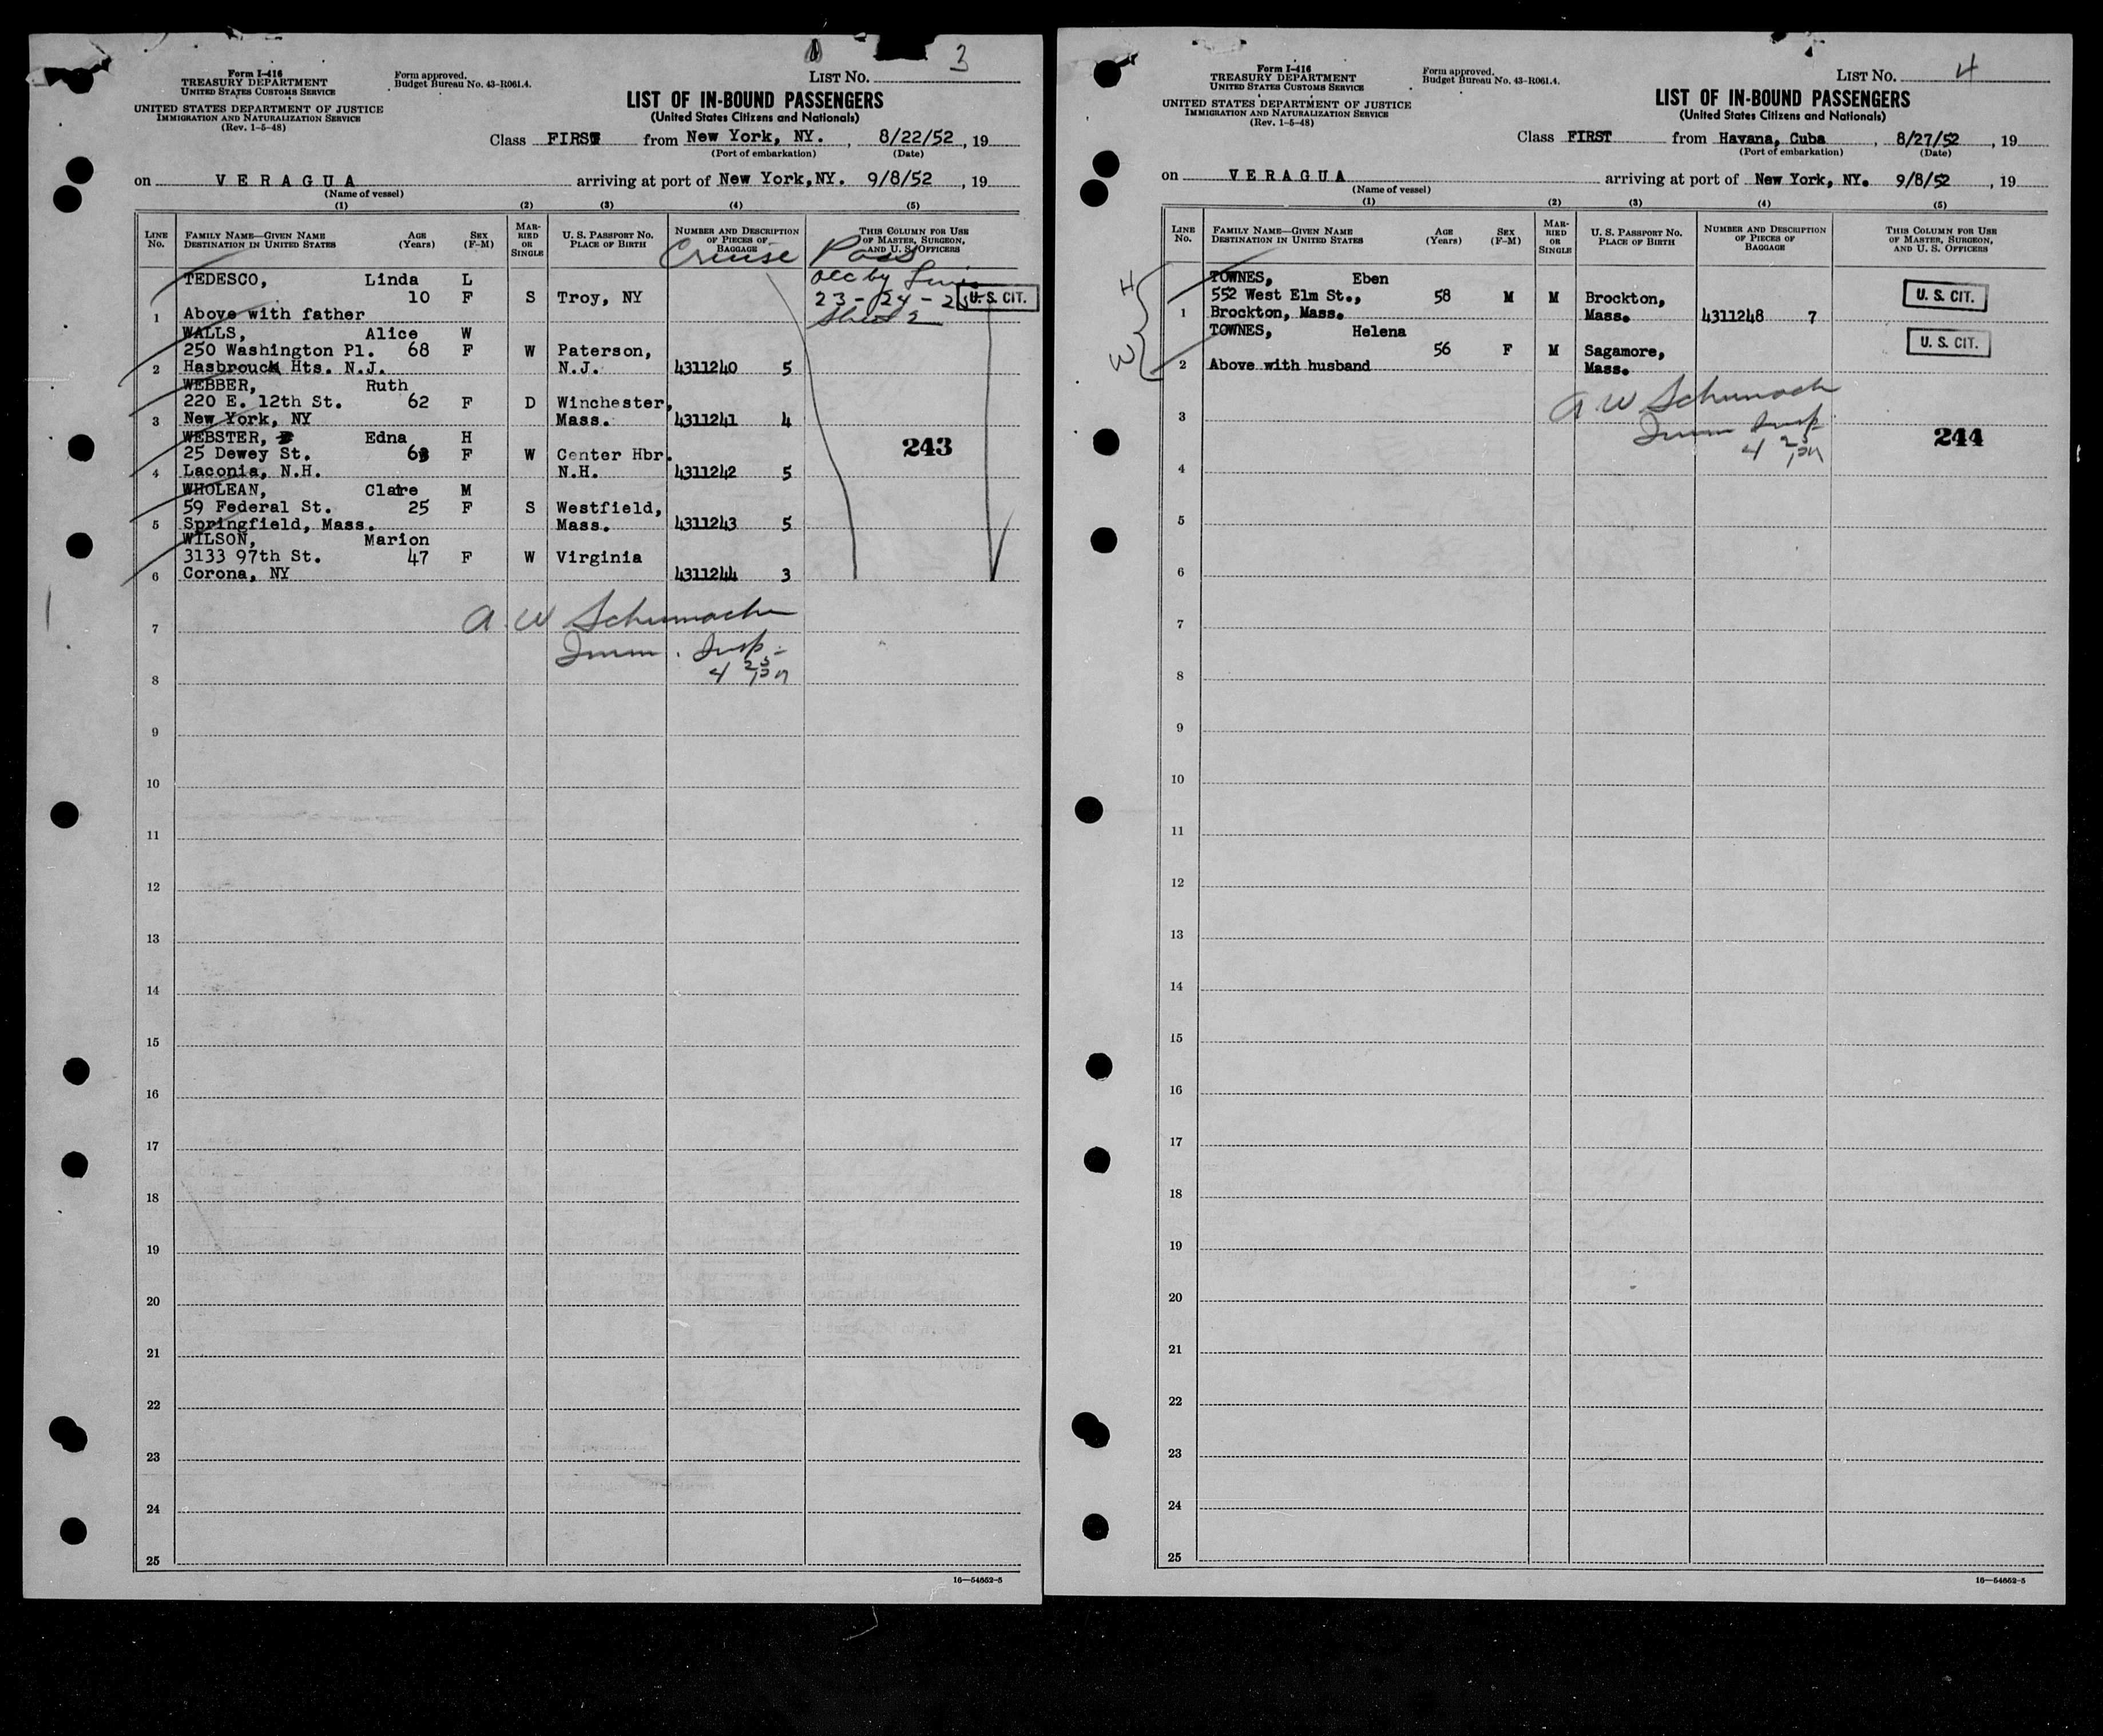 3
Form I-416
TREASURY DEPARTMENT
UNITED STATES CUSTOMS SERVICE
UNITED STATES DEPARTMENT OF JUSTICE
IMMIGRATION AND NATURALIZATION SERVICE
(Rev. 1-5-48)
Form approved.
Budget Bureau No. 43-R061.4.
LIST NO.
LIST OF IN-BOUND PASSENGERS
(United States Citizens and Nationals)
Class FIRST from New York, NY. , 8/22/52 , 19
(Port of embarkation) (Date)
on VERAGUA arriving at port of New York,NY. 9/8/52 , 19
(Name of vessel)
(1) (2) (3) (4) (5)
LINE No. FAMILY NAME—GIVEN NAME DESTINATION IN UNITED STATES AGE (Years) SEX (F-M) MARRIED OR SINGLE U. S. PASSPORT NO. PLACE OF BIRTH NUMBER AND DESCRIPTION OF PIECES OF BAGGAGE THIS COLUMN FOR USE OF MASTER, SURGEON, AND U. S. OFFICERS
Cruise Pass
TEDESCO, Linda L
10 F S Troy, NY 23-24-25 U. S. CIT.
1 Above with father
WALLS, Alice W
250 Washington Pl. 68 F W Paterson,
2 Hasbrouck Hts. N.J. N.J. 4311240 5
WEBBER, Ruth
220 E. 12th St. 62 F D Winchester,
3 New York, NY Mass. 4311241 4
WEBSTER, Edna H
25 Dewey St. F W Center Hbr. 243
4 Laconia, N.H. N.H. 4311242 5
WHOLEAN, Claire M
59 Federal St. 25 F S Westfield,
5 Springfield, Mass. Mass. 4311243 5
WILSON, Marion
3133 97th St. 47 F W Virginia
6 Corona, NY 4311244 3
A W Schumacher
7
Imm. Insp.
8
9
10
11
12
13
14
15
16
17
18
19
20
21
22
23
24
25
16—54652-5
4
Form I-416
TREASURY DEPARTMENT
UNITED STATES CUSTOMS SERVICE
UNITED STATES DEPARTMENT OF JUSTICE
IMMIGRATION AND NATURALIZATION SERVICE
(Rev. 1-5-48)
Form approved.
Budget Bureau No. 43-R061.4.
LIST NO.
LIST OF IN-BOUND PASSENGERS
(United States Citizens and Nationals)
Class FIRST from Havana, Cuba , 8/27/52 , 19
(Port of embarkation) (Date)
on VERAGUA arriving at port of New York, NY. 9/8/52 , 19
(Name of vessel)
(1) (2) (3) (4) (5)
LINE No. FAMILY NAME—GIVEN NAME DESTINATION IN UNITED STATES AGE (Years) SEX (F-M) MARRIED OR SINGLE U. S. PASSPORT NO. PLACE OF BIRTH NUMBER AND DESCRIPTION OF PIECES OF BAGGAGE THIS COLUMN FOR USE OF MASTER, SURGEON, AND U. S. OFFICERS
H TOWNES, Eben
552 West Elm St., 58 M M Brockton, U. S. CIT.
1 Brockton, Mass. Mass. 4311248 7
TOWNES, Helena
W 56 F M Sagamore, U. S. CIT.
2 Above with husband Mass.
A W Schumach
3
Imm Insp 244
4
5
6
7
8
9
10
11
12
13
14
15
16
17
18
19
20
21
22
23
24
25
16—54652-5